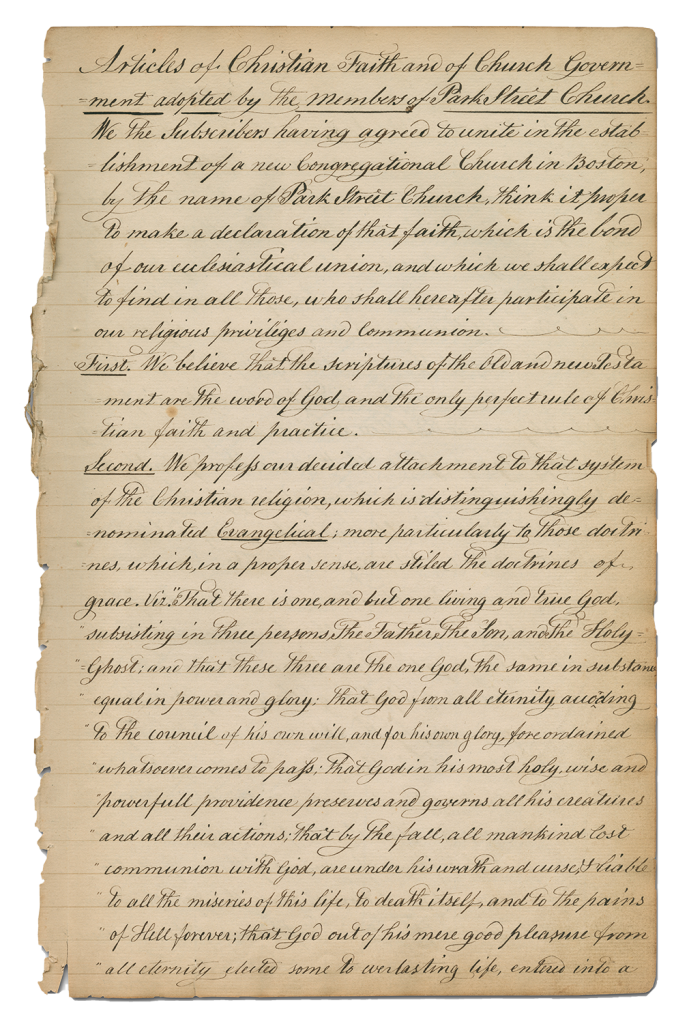 Articles of Christian Faith and of Church Govern=
=ment adopted by the members of Park Street Church.
We the Subscribers having agreed to unite in the estab=
=lishment of a new Congregational Church in Boston,
by the name of Park Street Church, think it proper
to make a declaration of that faith, which is the bond
of our ecclesiastical union, and which we shall expect
to find in all those, who shall hereafter participate in
our religious priviliges and Communion.
First. We believe that the scriptures of the Old and new Testa
ment are the word of God, and the only perfect rule of Chris=
=tian faith and practice.
Second. We profess our decided attachment to that system
of the Christian religion, which is distinguishingly de=
=nominated Evangelical; more particularly to those doctri
nes, which, in a proper sense, are stiled the doctrines of
grace. Viz. "That there is one, and but one living and true God,
"subsisting in three persons, The Father, The Son, and The Holy=
"=Ghost; and that these three are the one God, the same in substance
"equal in power and glory: That God from all eternity according
"to the council of his own will, and for his own glory, foreordained
"whatsoever comes to pass: That God in his most holy, wise and
"powerfull providence preserves and governs all his creatures
"and all their actions; that by the fall, all mankind lost
"communion with God, are under his wrath and curse, & liable
"to all the miseries of this life, to death itself, and to the pains
"of Hell forever; that God out of his mere good pleasure from
"all eternity elected some to everlasting life, entered into a